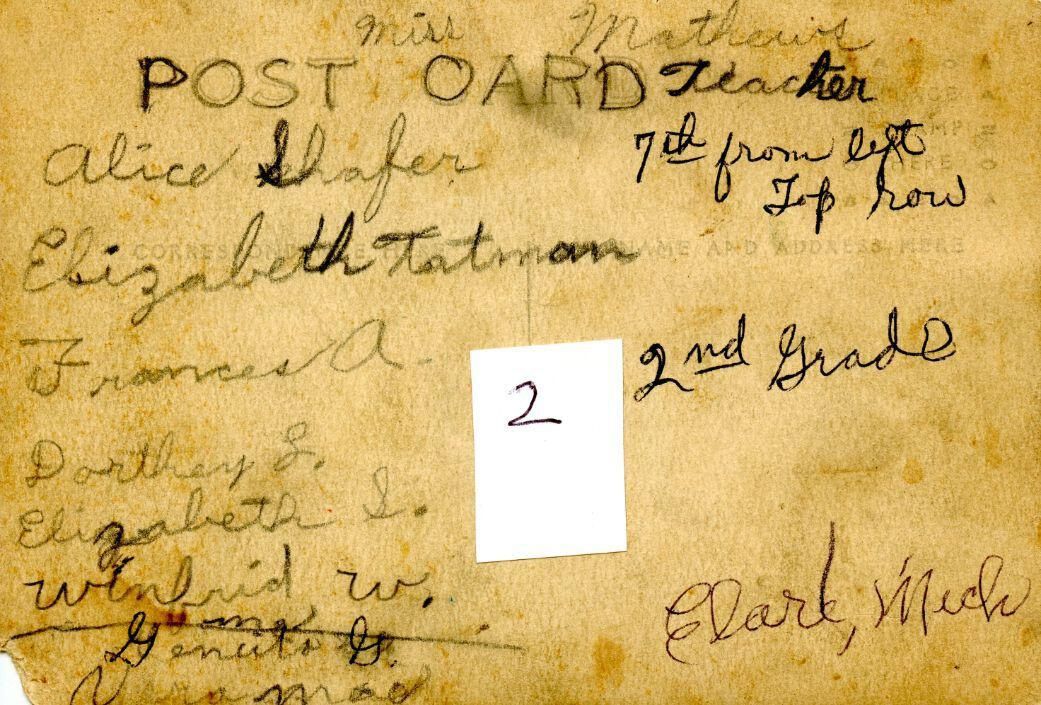 Miss Mathews
POST CARD Teacher
Alice Shafer
7th from left
Top row
Elizabeth Tatman
CORRESPONDENCE HERE NAME AND ADDRESS HERE
Frances A.
2nd Grade
2
Dorthey L.
Elizabeth S.
Winfrid W.
G.
Clare, Mich